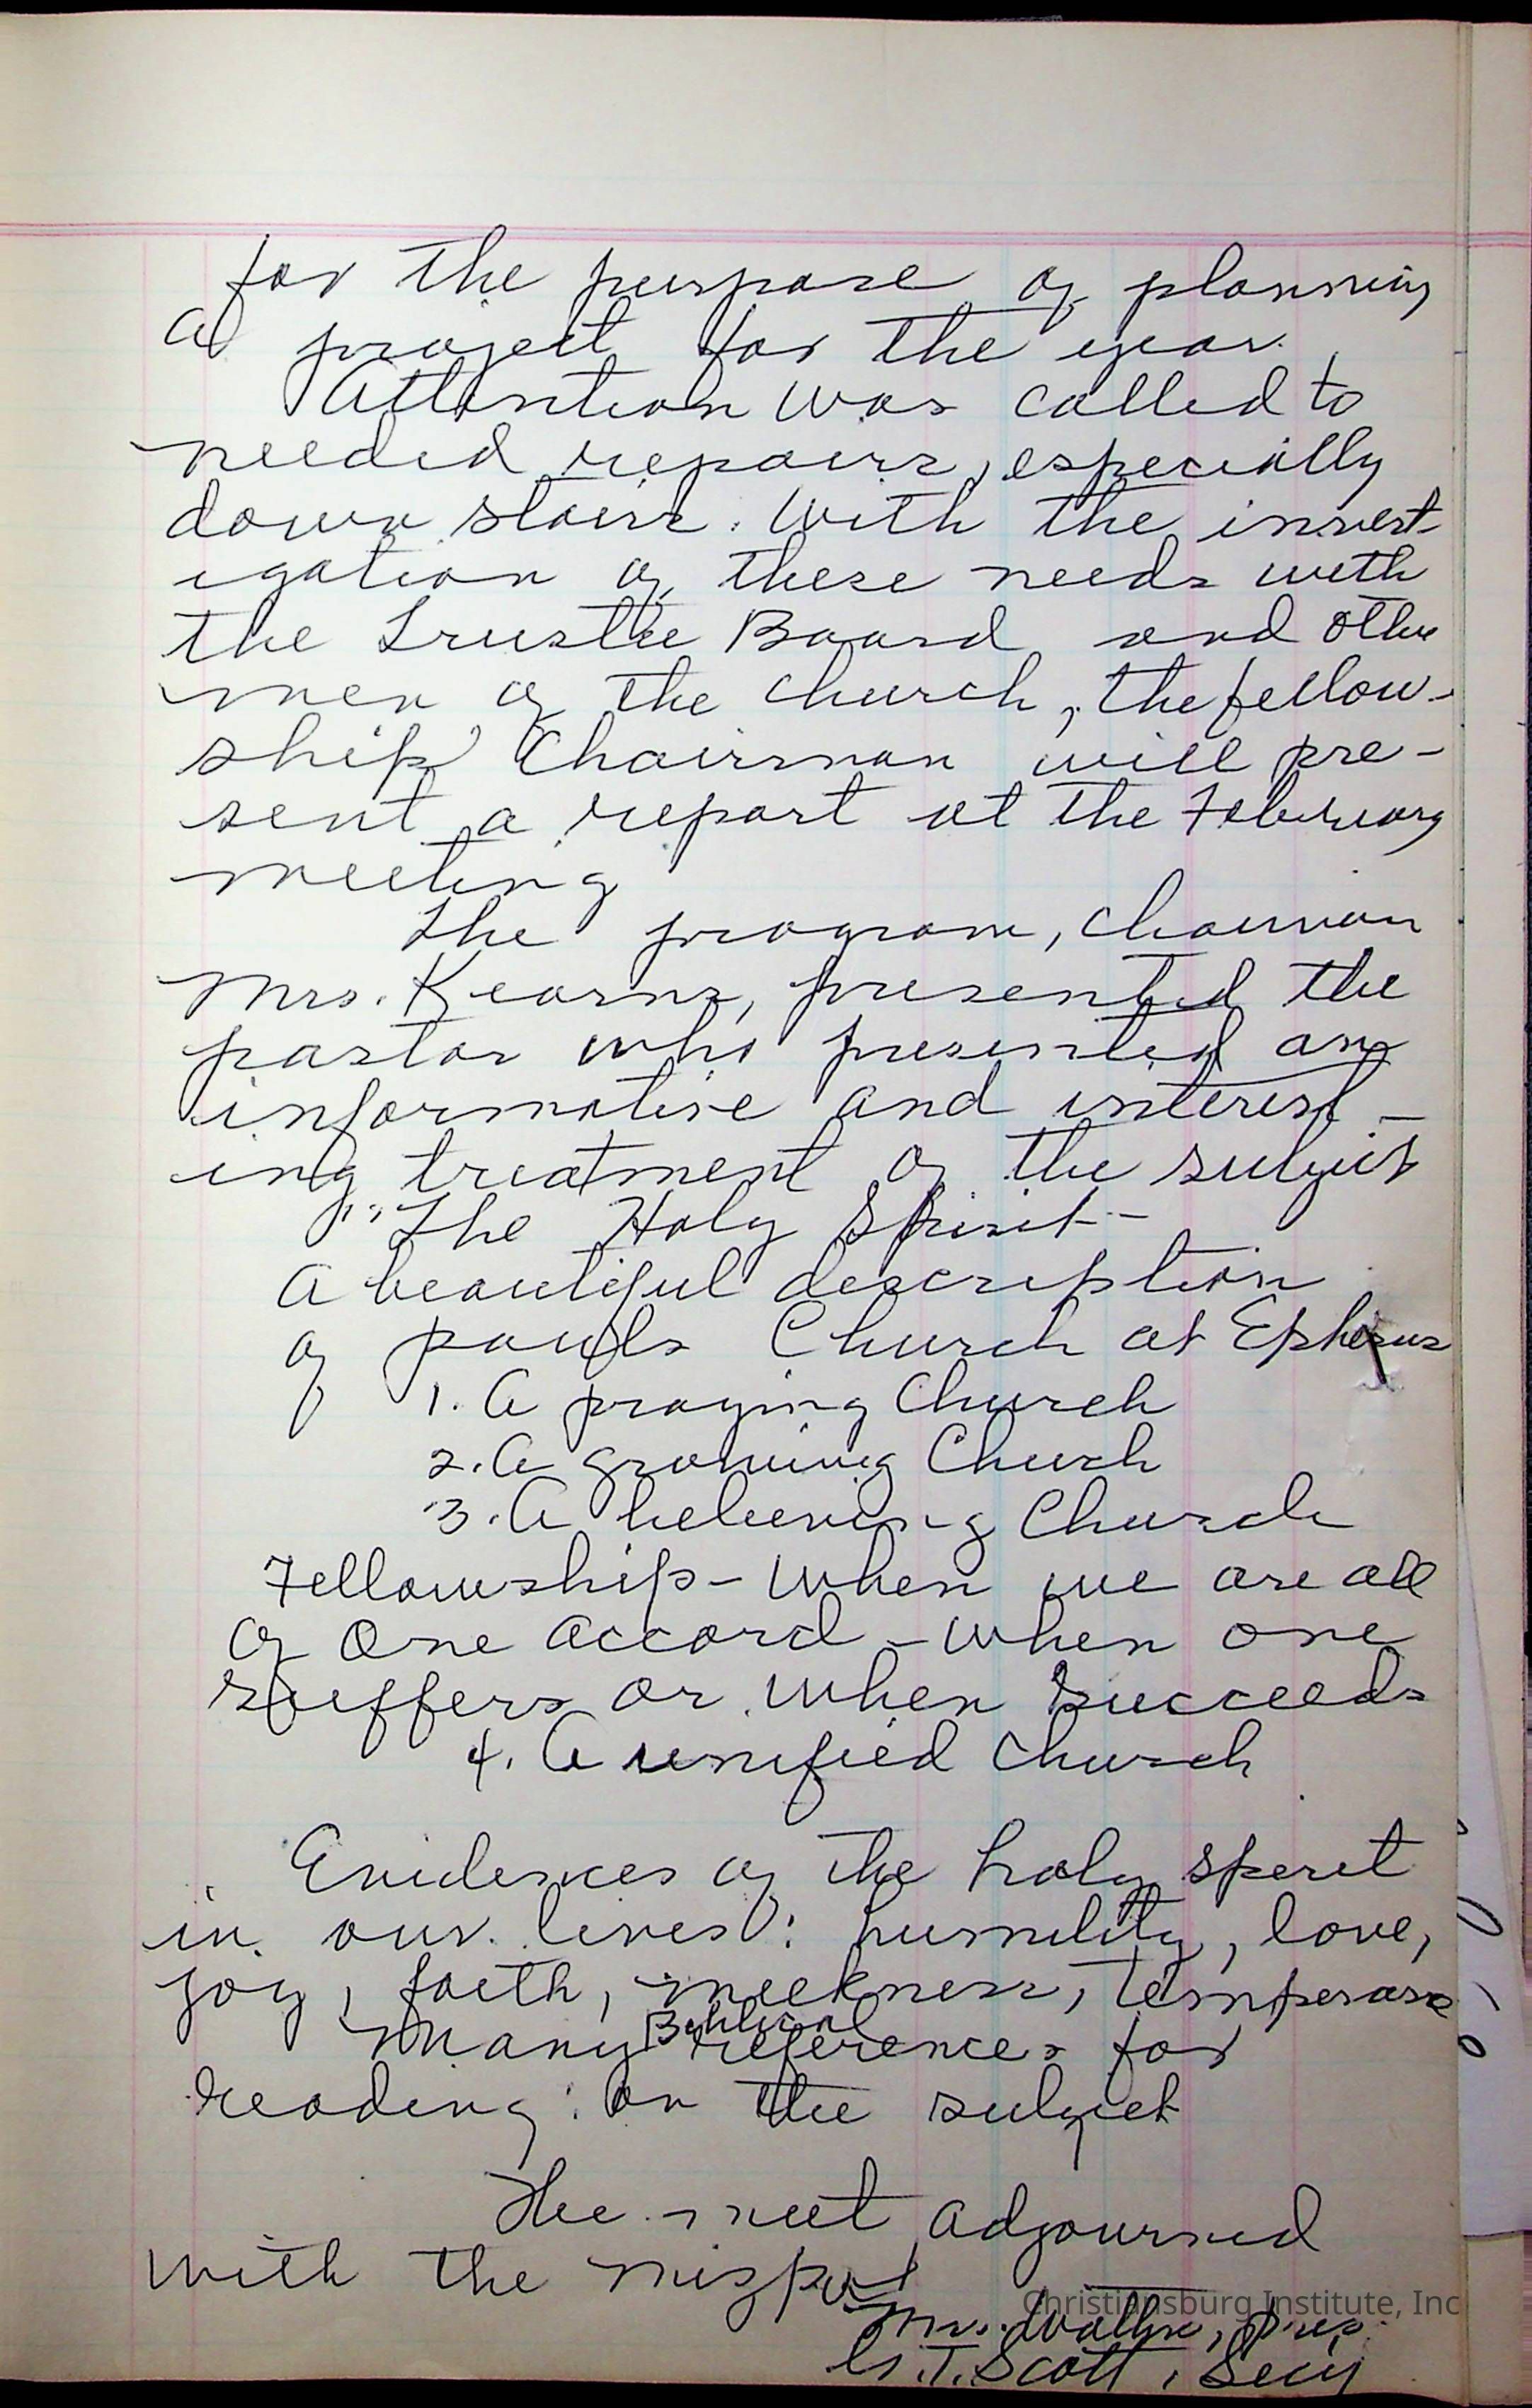 for the purpose of planning
a project for the year.
Attention was called to
needed repairs, especially
down stairs. With the invest-
igation of these needs with
the Trustee Board and other
men of the church, the fellow-
ship Chairman will pre-
sent a report at the February
meeting
The program, chairman
Mrs. Kearns, presented the
pastor who presented an
informative and interest-
ing treatment of the subject
"The Holy Spirit--
A beautiful description
of Pauls Church at Ephesus
1. A praying Church
2. A growing Church
3. A believing Church
Fellowship - When we are all
of One accord - when one
suffers or when succeeds
4. A unified church
Evidences of the holy spirit
in our lives: humility, love,
joy, faith, meekness, temperance
Many Biblical references for
reading on the subject
The meet adjourned
with the mizpah
Mrs. Walker, Pres.
G.T. Scott, Secy
Christiansburg Institute, Inc